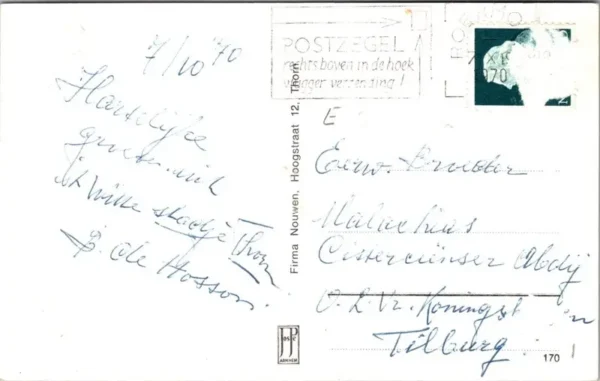 7/10 70
Hartelijke
groeten uit
't Witte stadje Thorn
B. de Hosson.
Firma Nouwen, Hoogstraat 12, Thorn
POSTZEGEL
rechts boven in de hoek
vlugger verzending!
RO
7 X
1970
E
Eerw. Broeder
Malachias
Cisterciënser Abdij
O. L. Vr. Koningsh
Tilburg.
JP
ARNHEM
170